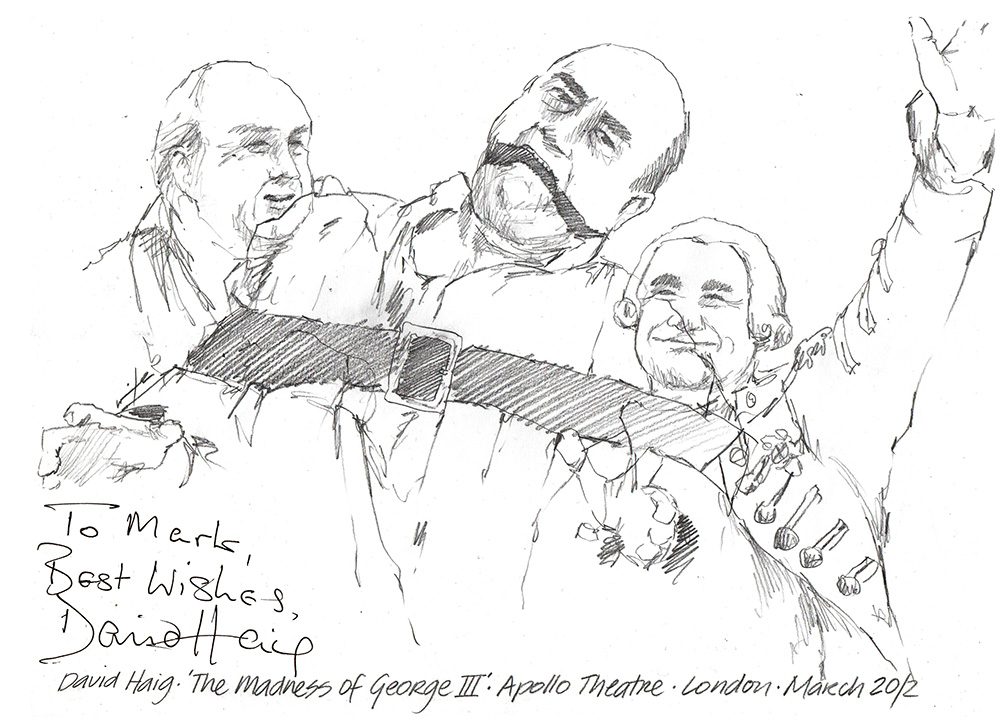 To Mark,
Best Wishes,
David Haig
David Haig · 'The Madness of George III' · Apollo Theatre · London · March 2012